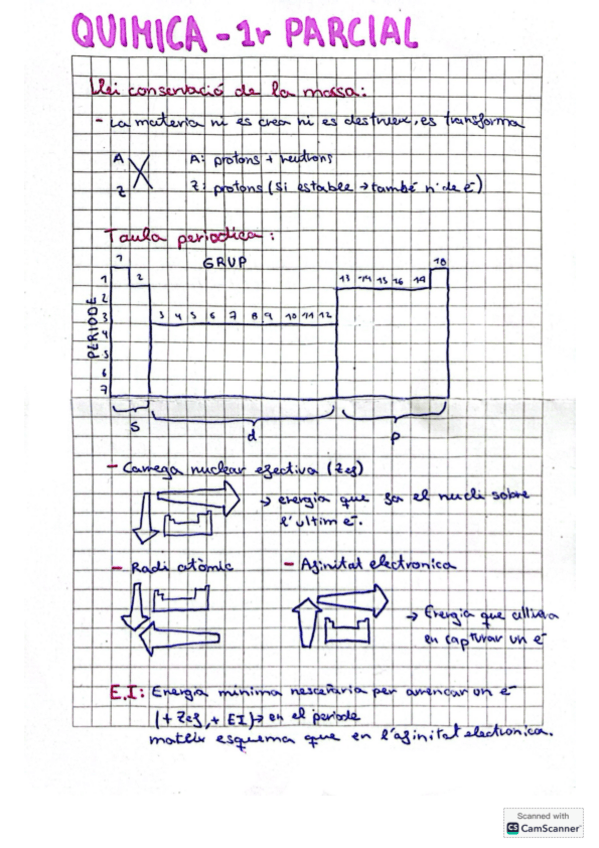 QUIMICA - 1r PARCIAL
Llei conservació de la massa:
- La materia ni es crea ni es destrueix, es transforma
A X A: protons + neutrons
Z Z: protons (si estable → també nº de e⁻)
Taula periodica:
GRUP
1 18
1 2 13 14 15 16 17
2
PERIODE 3 3 4 5 6 7 8 9 10 11 12
4
5
6
7
s d p
- Carrega nuclear efectiva (Zef)
→ energia que fa el nucli sobre
l'ultim e⁻.
- Radi atòmic - Afinitat electronica
→ Energia que allibera
en capturar un e⁻
E.I: Energia minima nescesaria per arrencar un e⁻
(+ Zef, + EI) → en el periode
mateix esquema que en l'afinitat electronica.
Scanned with
CS CamScanner